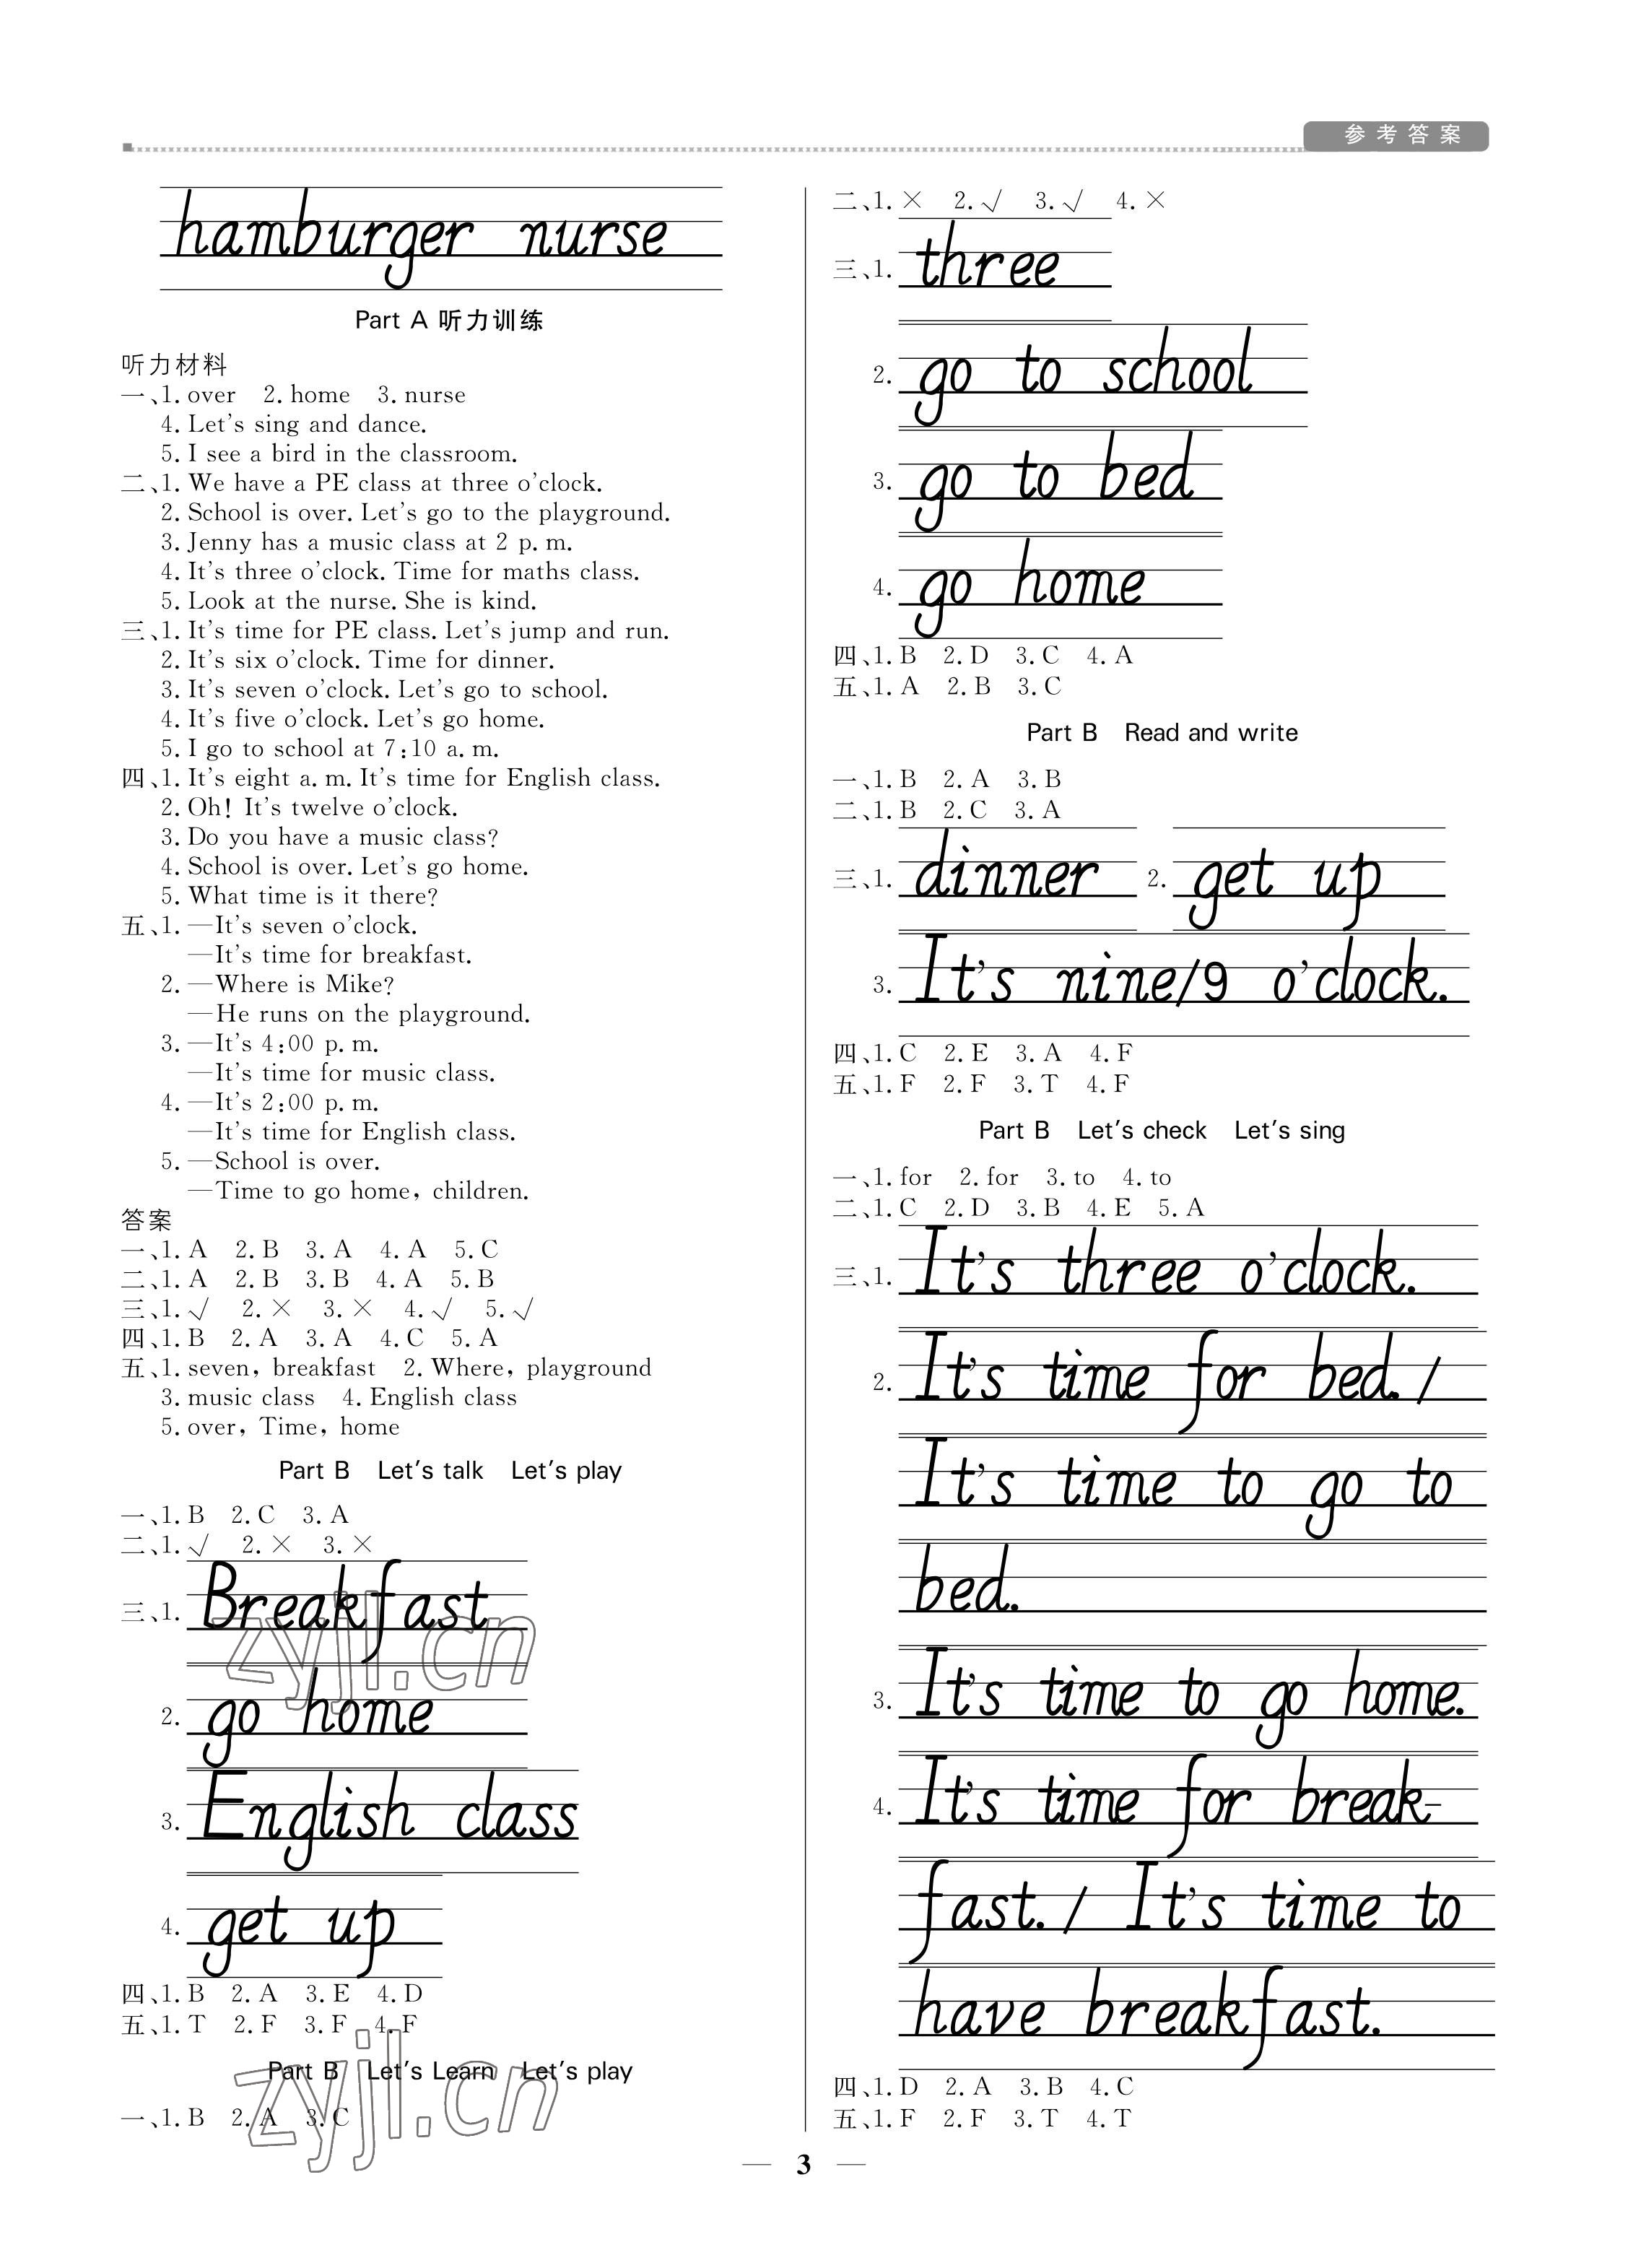 参考答案
hamburger nurse
Part A 听力训练
听力材料
一、1. over 2. home 3. nurse
4. Let's sing and dance.
5. I see a bird in the classroom.
二、1. We have a PE class at three o'clock.
2. School is over. Let's go to the playground.
3. Jenny has a music class at 2 p. m.
4. It's three o'clock. Time for maths class.
5. Look at the nurse. She is kind.
三、1. It's time for PE class. Let's jump and run.
2. It's six o'clock. Time for dinner.
3. It's seven o'clock. Let's go to school.
4. It's five o'clock. Let's go home.
5. I go to school at 7:10 a. m.
四、1. It's eight a. m. It's time for English class.
2. Oh! It's twelve o'clock.
3. Do you have a music class?
4. School is over. Let's go home.
5. What time is it there?
五、1. —It's seven o'clock.
—It's time for breakfast.
2. —Where is Mike?
—He runs on the playground.
3. —It's 4:00 p. m.
—It's time for music class.
4. —It's 2:00 p. m.
—It's time for English class.
5. —School is over.
—Time to go home, children.
答案
一、1. A 2. B 3. A 4. A 5. C
二、1. A 2. B 3. B 4. A 5. B
三、1. √ 2. × 3. × 4. √ 5. √
四、1. B 2. A 3. A 4. C 5. A
五、1. seven, breakfast 2. Where, playground
3. music class 4. English class
5. over, Time, home
Part B Let's talk Let's play
一、1. B 2. C 3. A
二、1. √ 2. × 3. ×
三、1. Breakfast
2. go home
3. English class
4. get up
四、1. B 2. A 3. E 4. D
五、1. T 2. F 3. F 4. F
Part B Let's Learn Let's play
一、1. B 2. A 3. C
二、1. × 2. √ 3. √ 4. ×
三、1. three
2. go to school
3. go to bed
4. go home
四、1. B 2. D 3. C 4. A
五、1. A 2. B 3. C
Part B Read and write
一、1. B 2. A 3. B
二、1. B 2. C 3. A
三、1. dinner 2. get up
3. It's nine/9 o'clock.
四、1. C 2. E 3. A 4. F
五、1. F 2. F 3. T 4. F
Part B Let's check Let's sing
一、1. for 2. for 3. to 4. to
二、1. C 2. D 3. B 4. E 5. A
三、1. It's three o'clock.
2. It's time for bed. /
It's time to go to
bed.
3. It's time to go home.
4. It's time for break-
fast. / It's time to
have breakfast.
四、1. D 2. A 3. B 4. C
五、1. F 2. F 3. T 4. T
— 3 —
zyjl.cn
zyjl.cn